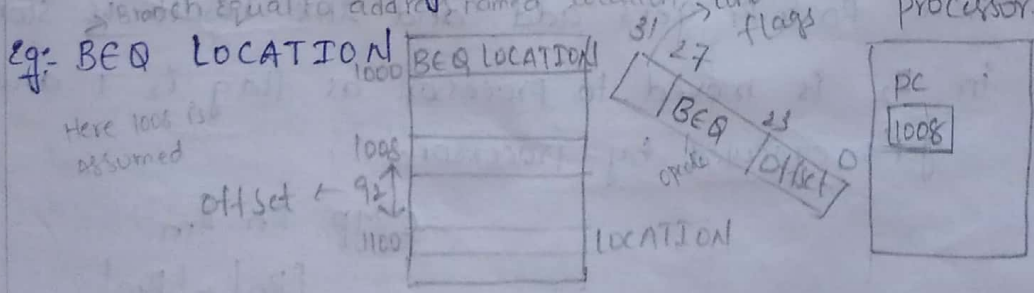 Branch equal to
flags
processor
Eg:- BEQ LOCATION
1000 BEQ LOCATION
31 27
BEQ 23
Offset 0
opcode
PC
1008
Here 1008 is
assumed
1008
Offset ← 92
1100 LOCATION